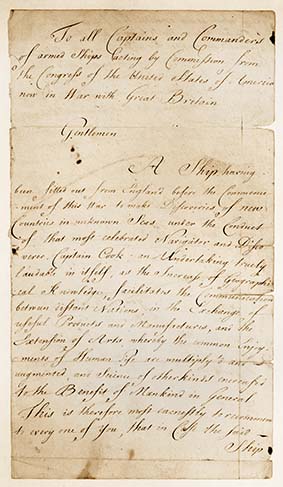 To all Captains and Commanders
of armed Ships acting by Commission from
the Congress of the United States of America
now in War with Great Britain
Gentlemen
A Ship having
been fitted out from England before the Commence-
ment of this War to make Discoveries of new
Countries in unknown Seas, under the Conduct
of that most celebrated Navigator and Discov-
erer Captain Cook; an Undertaking truly
laudable in itself, as the Increase of Geographi-
cal Knowledge facilitates the Communication
between distant Nations, in the Exchange of
useful Products and Manufactures, and the
Extension of Arts, whereby the common Enjoy-
ments of Human Life are multiply'd and
augmented, and Science of other kinds encreased
to the Benefit of Mankind in General
This is therefore most earnestly to recommend
to every one of you, that in Case the said
Ship